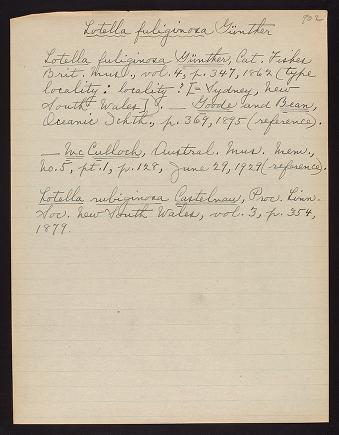 902
Lotella fuliginosa Günther
Lotella fuliginosa Günther, Cat. Fishes
Brit. Mus., vol. 4, p. 347, 1862 (type
locality: locality? [= Sydney, New
South Wales]). — Goode and Bean,
Oceanic Ichth., p. 369, 1895 (reference).
— McCulloch, Austral. Mus. Mem.,
no. 5, pt. 1, p. 128, June 29, 1929 (reference).
Lotella rubiginosa Castelnau, Proc. Linn.
Soc. New South Wales, vol. 3, p. 354,
1879.